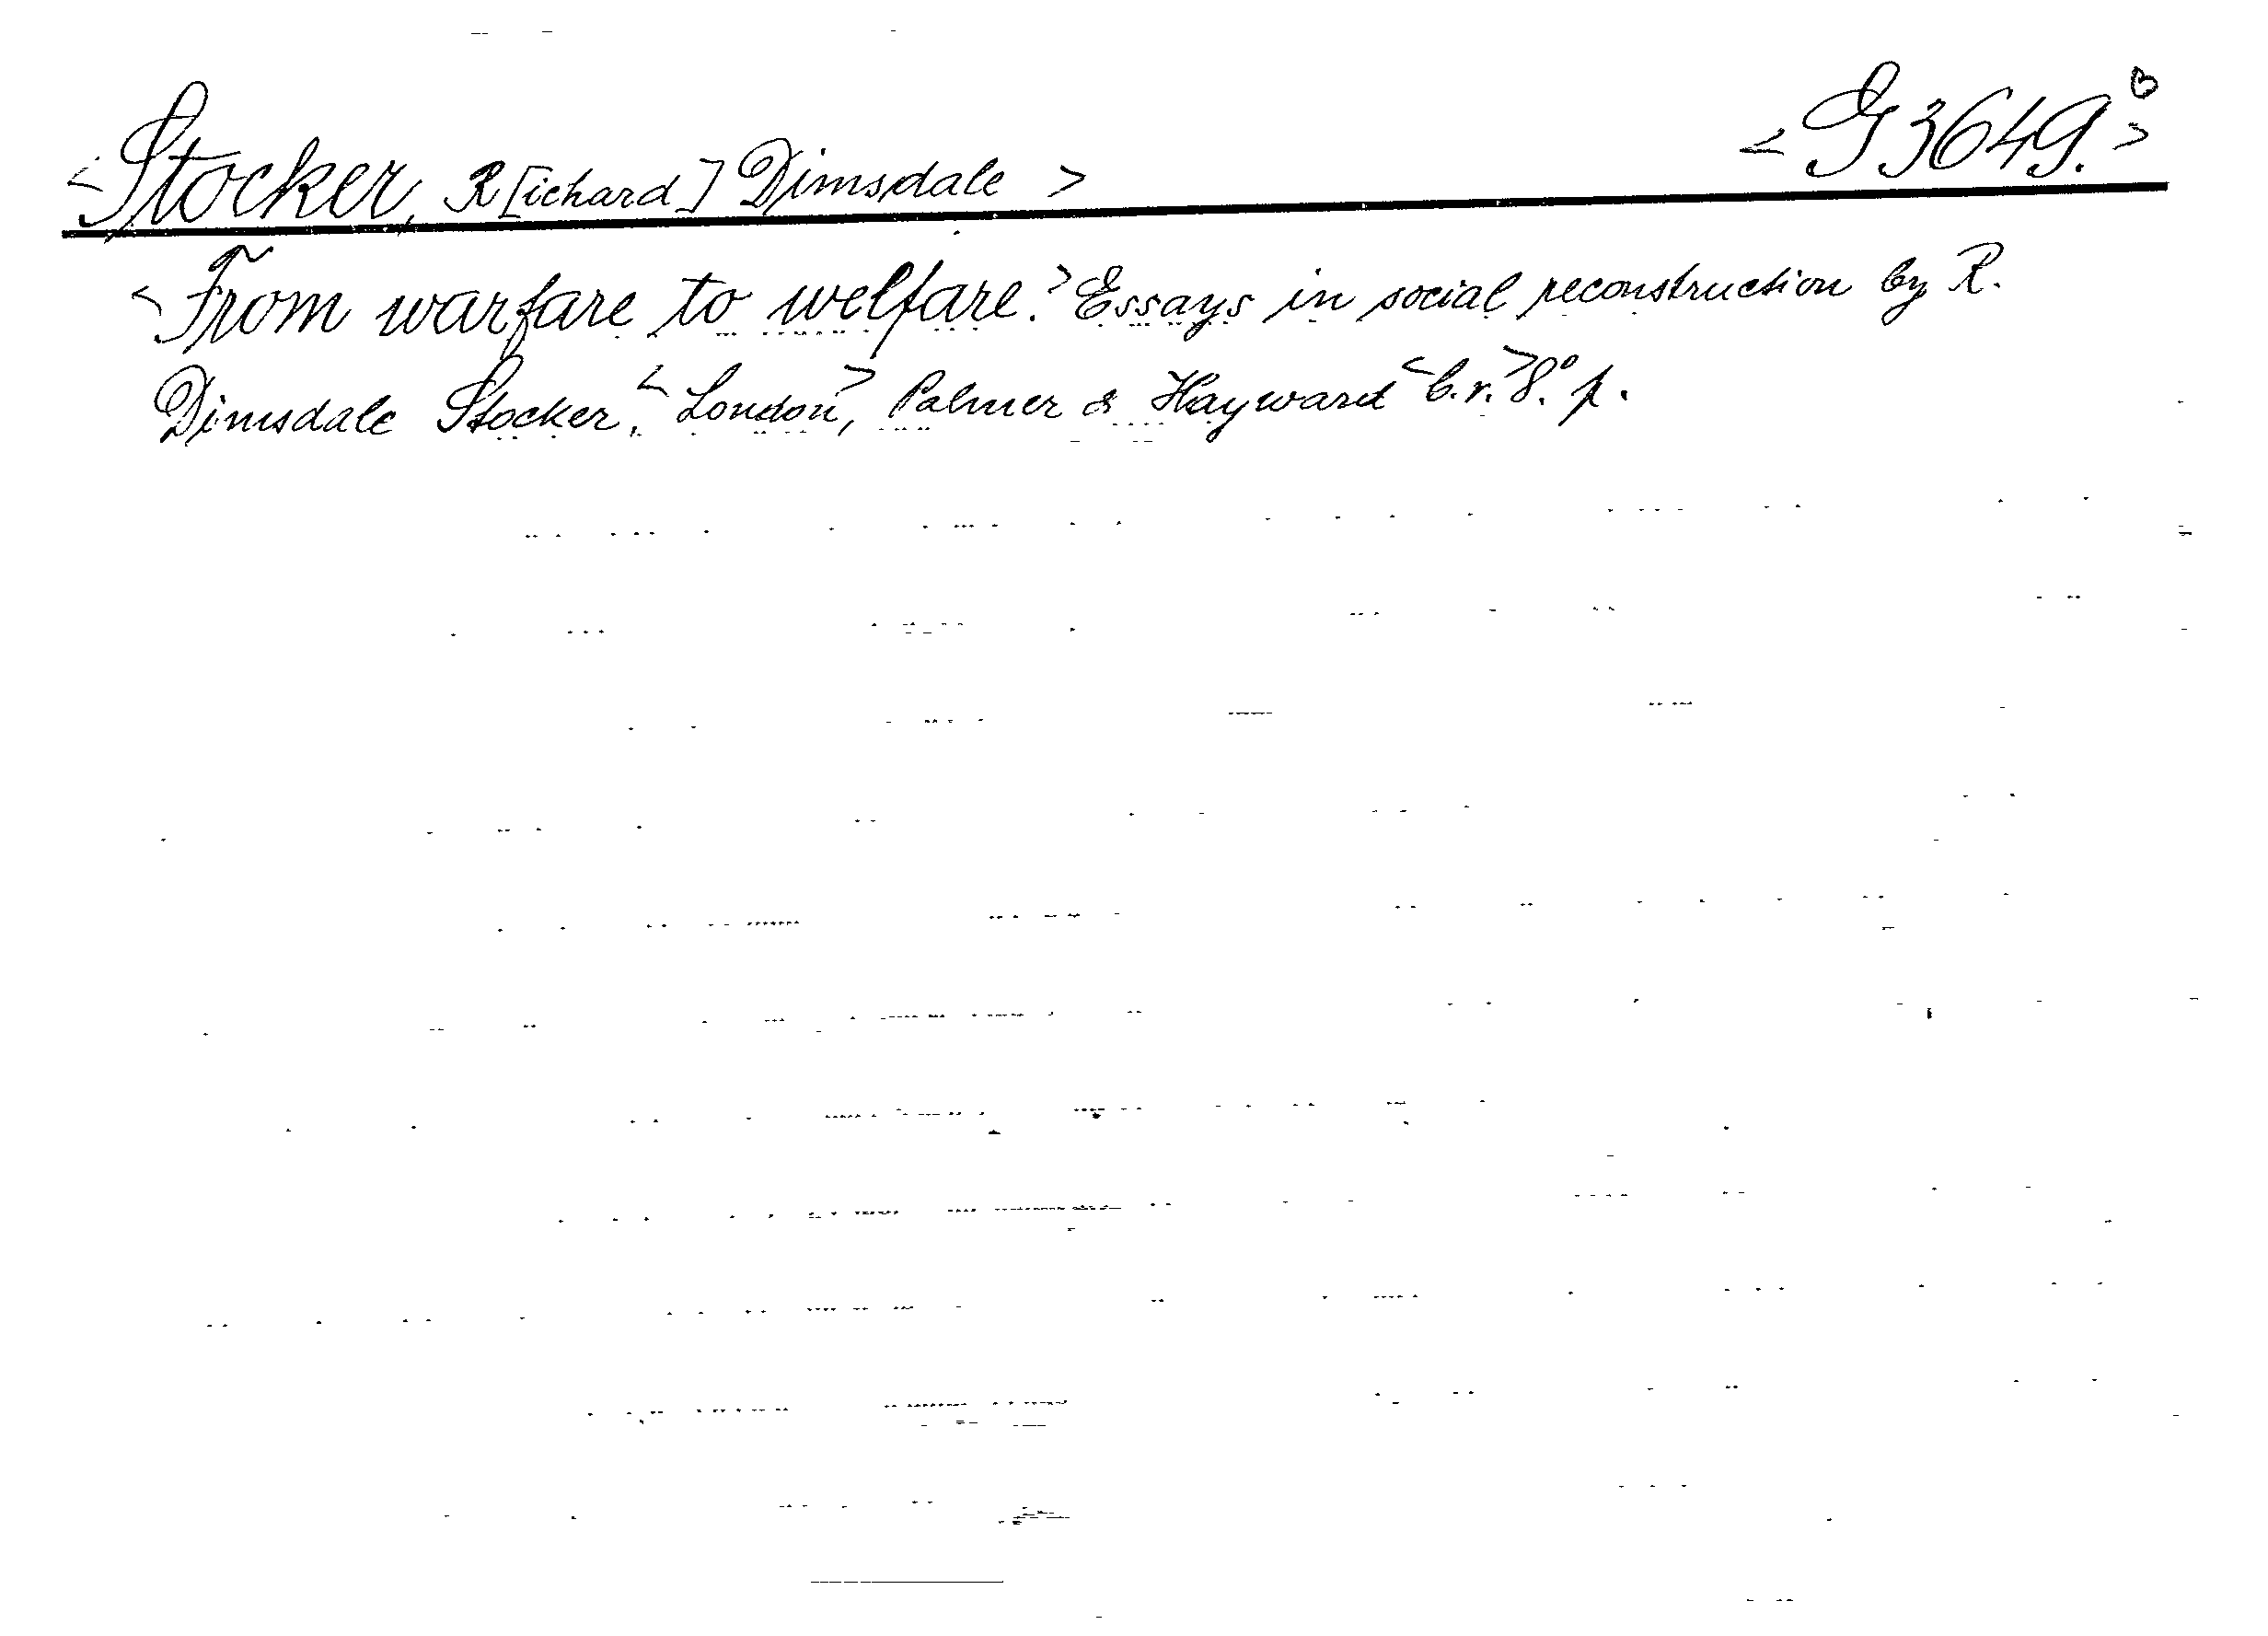 <Stocker, R[ichard] Dimsdale> <G 3649.B>
<From warfare to welfare.> Essays in social reconstruction by R.
Dimsdale Stocker. <London>, Palmer & Hayward <É.n.> 8.° p.